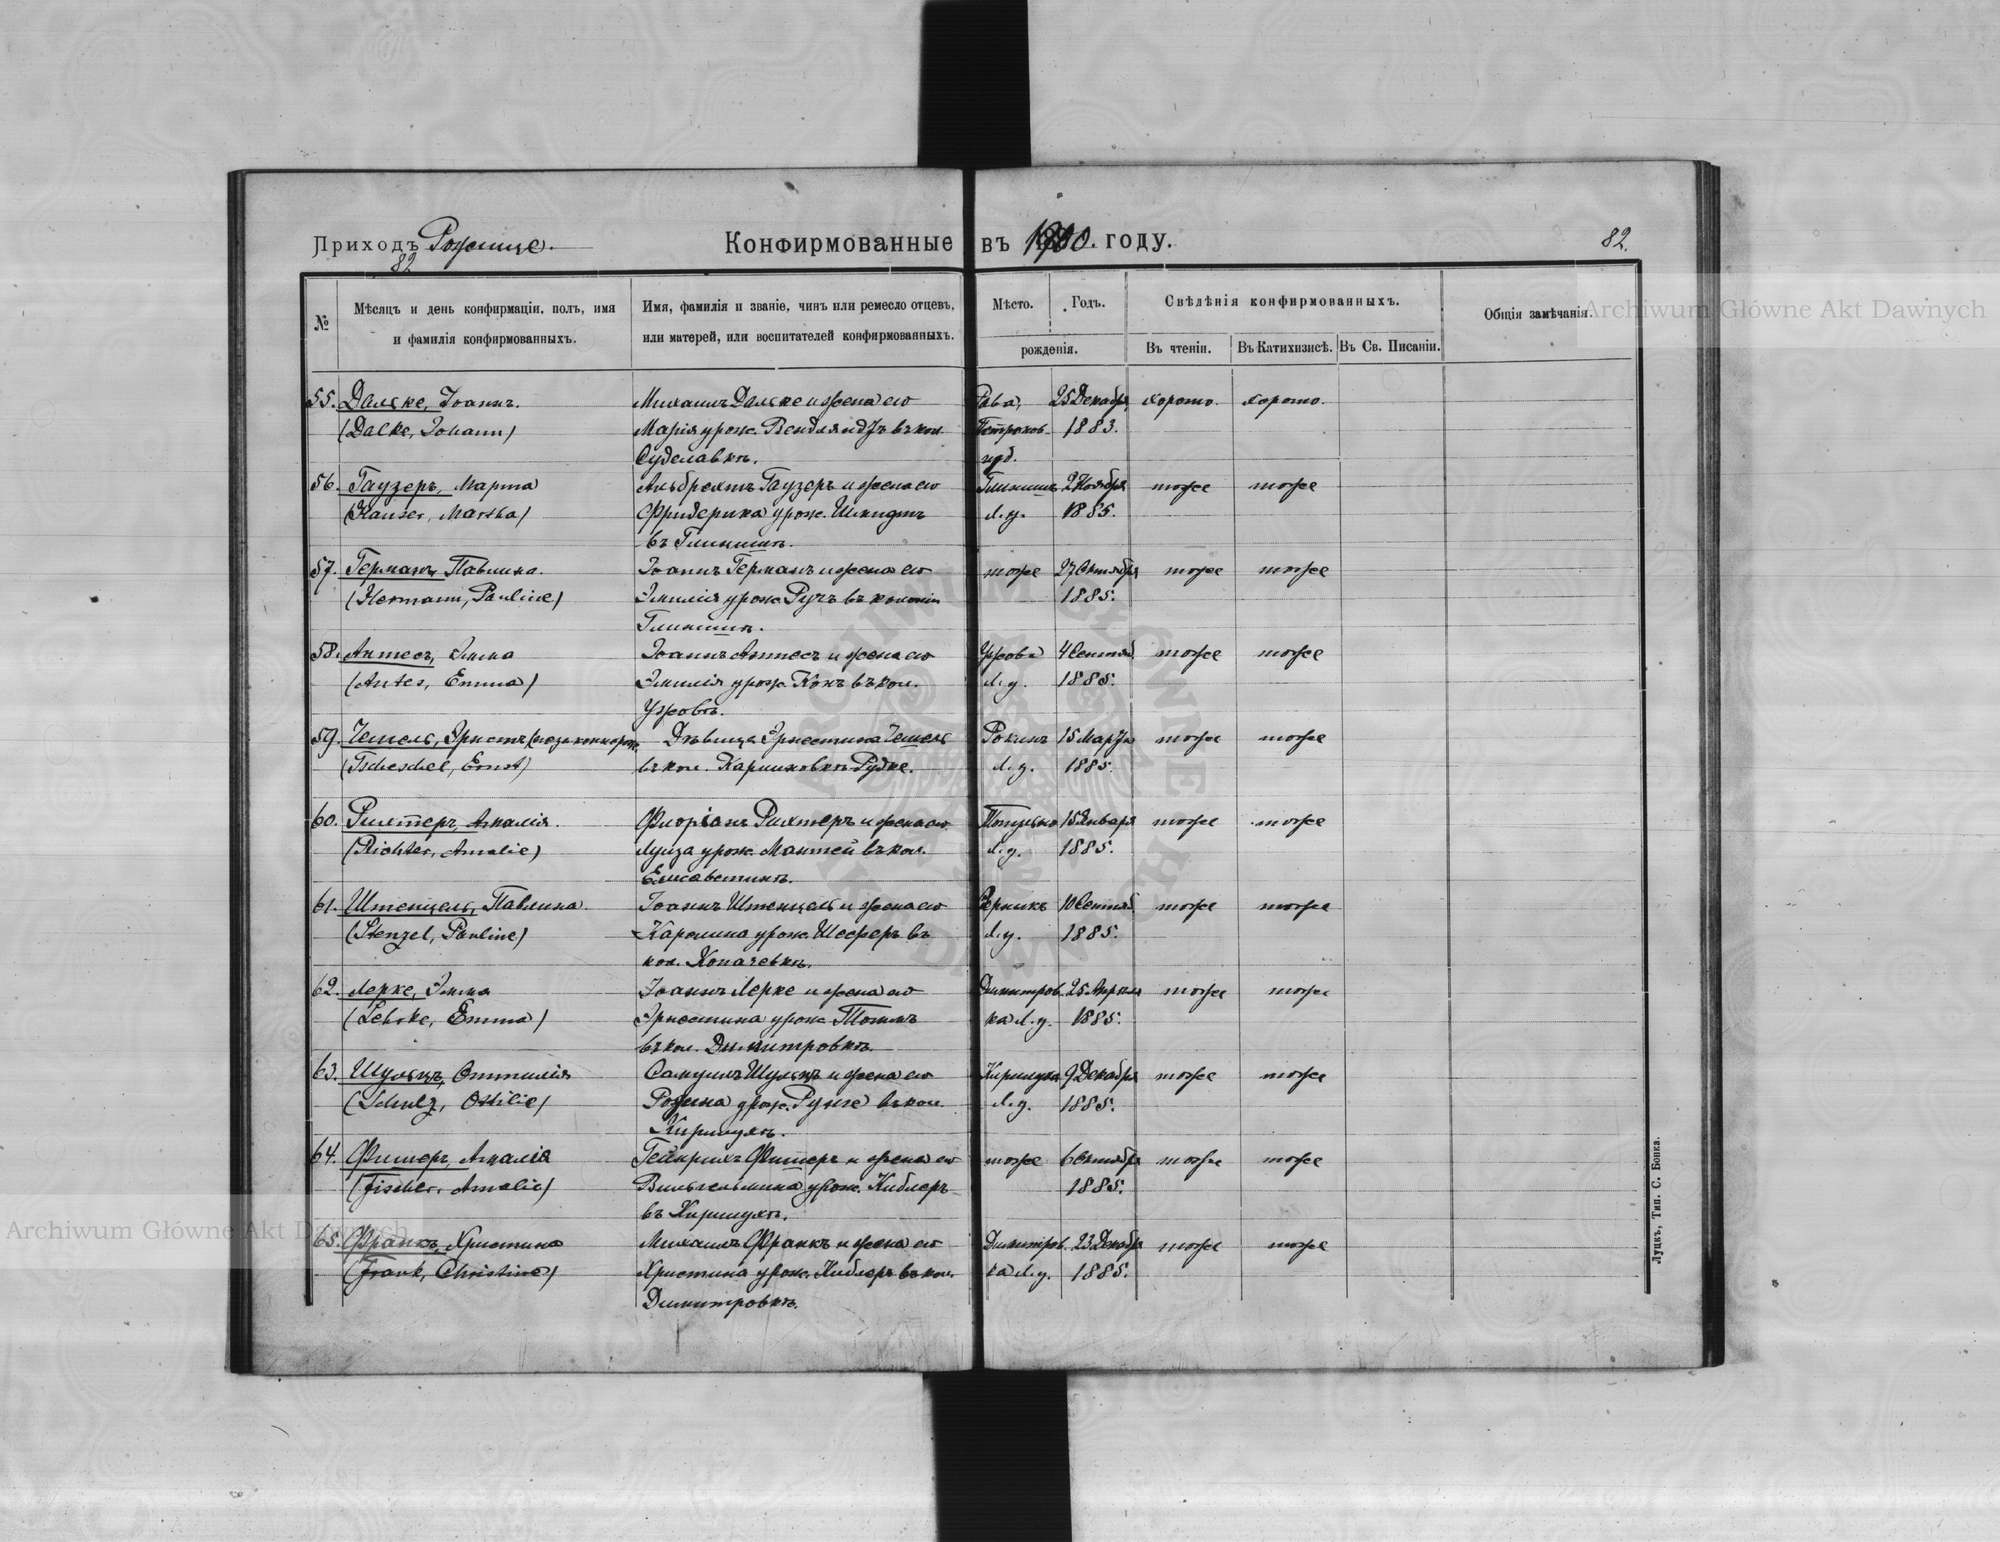 Приходъ Рожище.
Конфирмованные въ 1900. году.
82.
82
№
Мѣсяцъ и день конфирмаціи, полъ, имя
и фамилія конфирмованныхъ.
Имя, фамилія и званіе, чинъ или ремесло отцевъ,
или матерей, или воспитателей конфирмованныхъ.
Мѣсто.
Годъ.
рожденія.
Свѣдѣнія конфирмованныхъ.
Въ чтеніи.
Въ Катихизисѣ.
Въ Св. Писаніи.
Общія замѣчанія.
55. Дальке, Іоаннъ. Михаилъ Дальке и жена его Рава, 25 Декабря хорошо. хорошо.
(Dalke, Johann) Марія урож. Вендляндъ въ кол. Петроков. 1883.
Суделавкѣ. губ.
56. Гаузеръ, Марта Альбрехтъ Гаузеръ и жена его 2 Ноября тоже тоже
(Hauser, Martha) Фридерика урож. Шмидтъ Л. у. 1885.
57. Германъ, Павлина. Іоаннъ Германъ и жена его тоже 27 Октября тоже тоже
(Hermann, Pauline) Эмилія урож. въ колоніи 1885.
58. Антесъ, Эмма Іоаннъ Антесъ и жена его Ужова 4 Сентяб. тоже тоже
(Antes, Emma) Эмилія урож. Конъ въ кол. Л. у. 1885.
Ужовѣ.
59. Чешель, Эрнстъ Дѣвица Эрнестина Чешель 15 Марта тоже тоже
(Tscheschel, Ernst) въ кол. Л. у. 1885.
60. Рихтеръ, Амалія. Флоріанъ Рихтеръ и жена его 15 Января тоже тоже
(Richter, Amalie) Луиза урож. Мантей въ кол. Л. у. 1885.
Елисаветинѣ.
61. Штенцель, Павлина. Іоаннъ Штенцель и жена его 10 Сентяб. тоже тоже
(Stenzel, Pauline) Каролина урож. Шеферъ въ Л. у. 1885.
кол. Копачевкѣ.
62. Лерке, Эмма Іоаннъ Лерке и жена его Димитров- 25 Апрѣля тоже тоже
(Lehrke, Emma) Эрнестина урож. ка Л. у. 1885.
въ кол. Димитровкѣ.
63. Шульцъ, Оттилія Самуилъ Шульцъ и жена его 9 Декабря тоже тоже
(Schulz, Ottilie) Розина урож. въ кол. Л. у. 1885.
64. Фишеръ, Амалія Гейнрихъ Фишеръ и жена его тоже 6 Октября тоже тоже
(Fischer, Amalie) Вильгельмина урож. Киблеръ 1885.
65. Франкъ, Христина Михаилъ Франкъ и жена его Димитров- 23 Декабря тоже тоже
(Frank, Christine) Христина урож. Киблеръ въ кол. ка Л. у. 1885.
Димитровкѣ.
Луцкъ, Тип. С. Бонка.
Archiwum Główne Akt Dawnych
Archiwum Główne Akt Dawnych